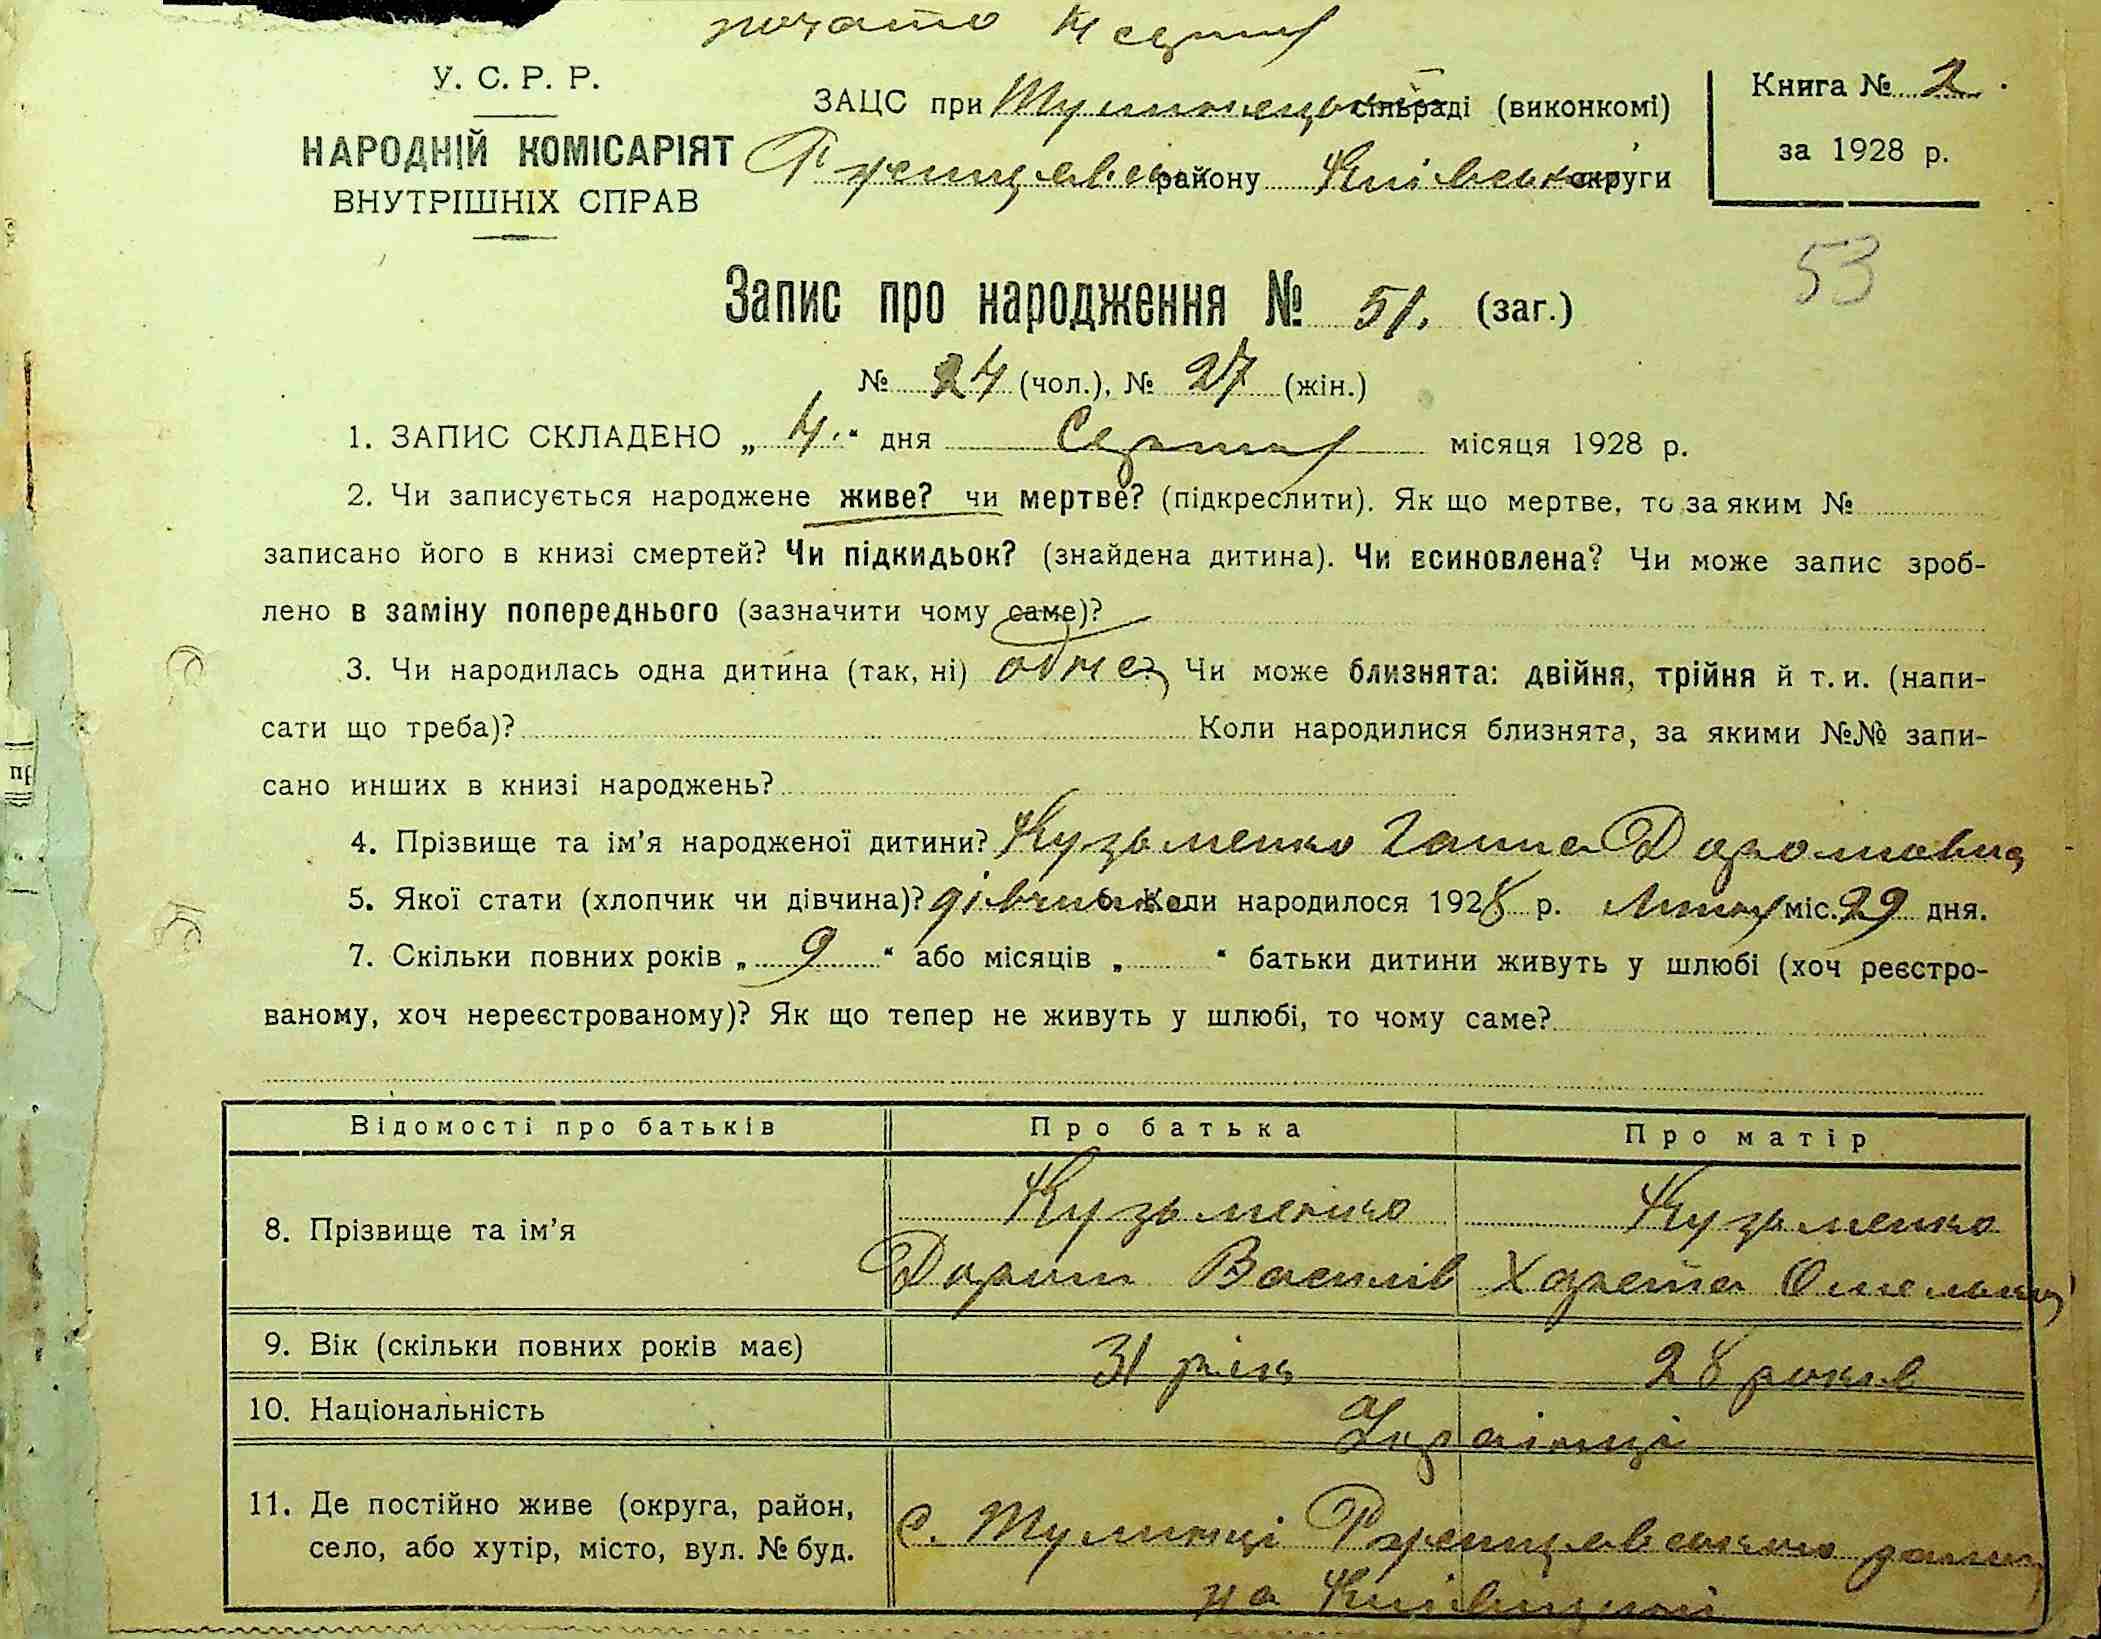 почато 4 серпня
У. С. Р. Р.
НАРОДНІЙ КОМІСАРІЯТ
ВНУТРІШНІХ СПРАВ
ЗАЦС при сільраді (виконкомі)
району Київської округи
Книга № 2
за 1928 р.
53
Запис про народження № 51. (заг.)
№ 24 (чол.), № 27 (жін.)
1. ЗАПИС СКЛАДЕНО „ 4. “ дня Серпня місяця 1928 р.
2. Чи записується народжене живе? чи мертве? (підкреслити). Як що мертве, то за яким №
записано його в книзі смертей? Чи підкидьок? (знайдена дитина). Чи всиновлена? Чи може запис зроб-
лено в заміну попереднього (зазначити чому саме)?
3. Чи народилась одна дитина (так, ні) одна Чи може близнята: двійня, трійня й т. и. (напи-
сати що треба)? Коли народилися близнята, за якими №№ запи-
сано инших в книзі народжень?
4. Прізвище та ім’я народженої дитини? Кузьменко Ганна
5. Якої стати (хлопчик чи дівчина)? дівчинка 6. Коли народилося 1928 р. Липня міс. 29 дня.
7. Скільки повних років „ 9 “ або місяців „ “ батьки дитини живуть у шлюбі (хоч реєстро-
ваному, хоч нереєстрованому)? Як що тепер не живуть у шлюбі, то чому саме?
Відомості про батьків Про батька Про матір
8. Прізвище та ім’я Кузьменко Кузьменко
Василів
9. Вік (скільки повних років має) 31 рік 28 років
10. Національність Українці
11. Де постійно живе (округа, район,
село, або хутір, місто, вул. № буд.
с. Тулинці Ржищевського району
на Київщині